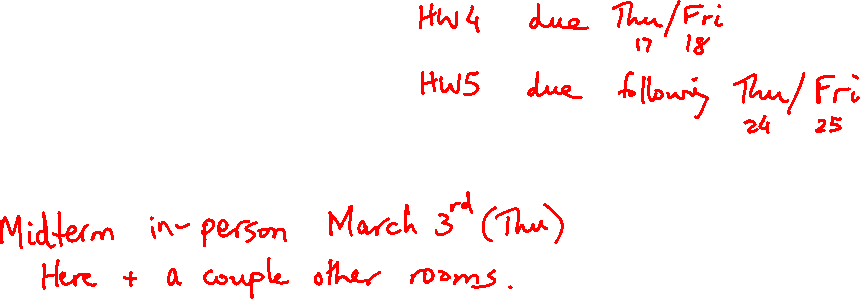 HW4 due Thu/Fri
17 18
HW5 due following Thu/Fri
24 25
Midterm in-person March 3rd (Thu)
Here + a couple other rooms.